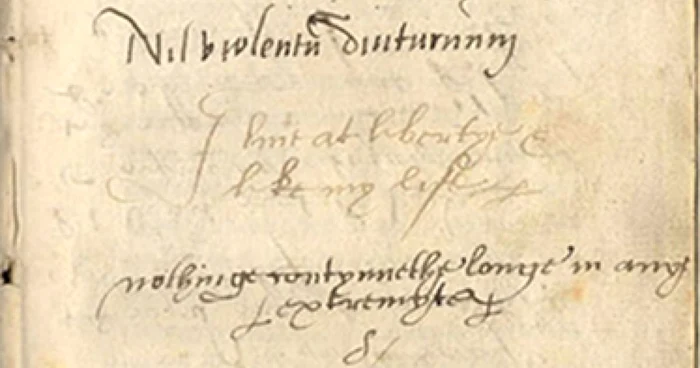 Nil violentũ diuturnum
I liue at libertye &
like my life
nothinge contynuethe longe in any
extremyte